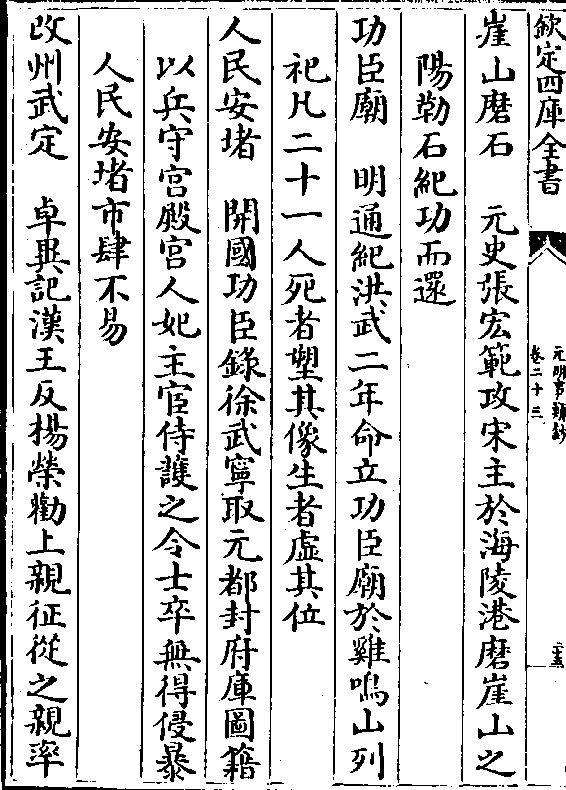 欽定四庫全書
元明事類鈔
卷二十三
二十五
崖山磨石　元史張宏範攻宋主於海陵港磨崖山之
陽勒石紀功而還
功臣廟　明通紀洪武二年命立功臣廟於雞鳴山列
祀凡二十一人死者塑其像生者虛其位
人民安堵　開國功臣錄徐武寧取元都封府庫圖籍
以兵守宫殿宫人妃主宦侍護之令士卒無得侵暴
人民安堵市肆不易
改州武定　卓異記漢王反楊榮勸上親征從之親率